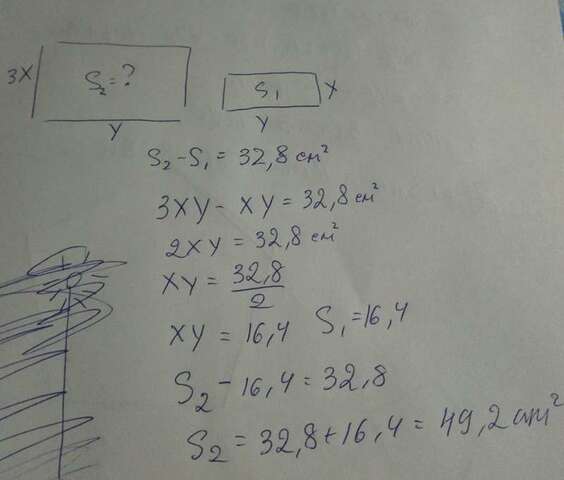 3X S₂=? S₁ X
Y Y
S₂-S₁=32,8 см²
3XY-XY=32,8 см²
2XY=32,8 см²
XY=32,8/2
XY=16,4 S₁=16,4
S₂-16,4=32,8
S₂=32,8+16,4=49,2 см²